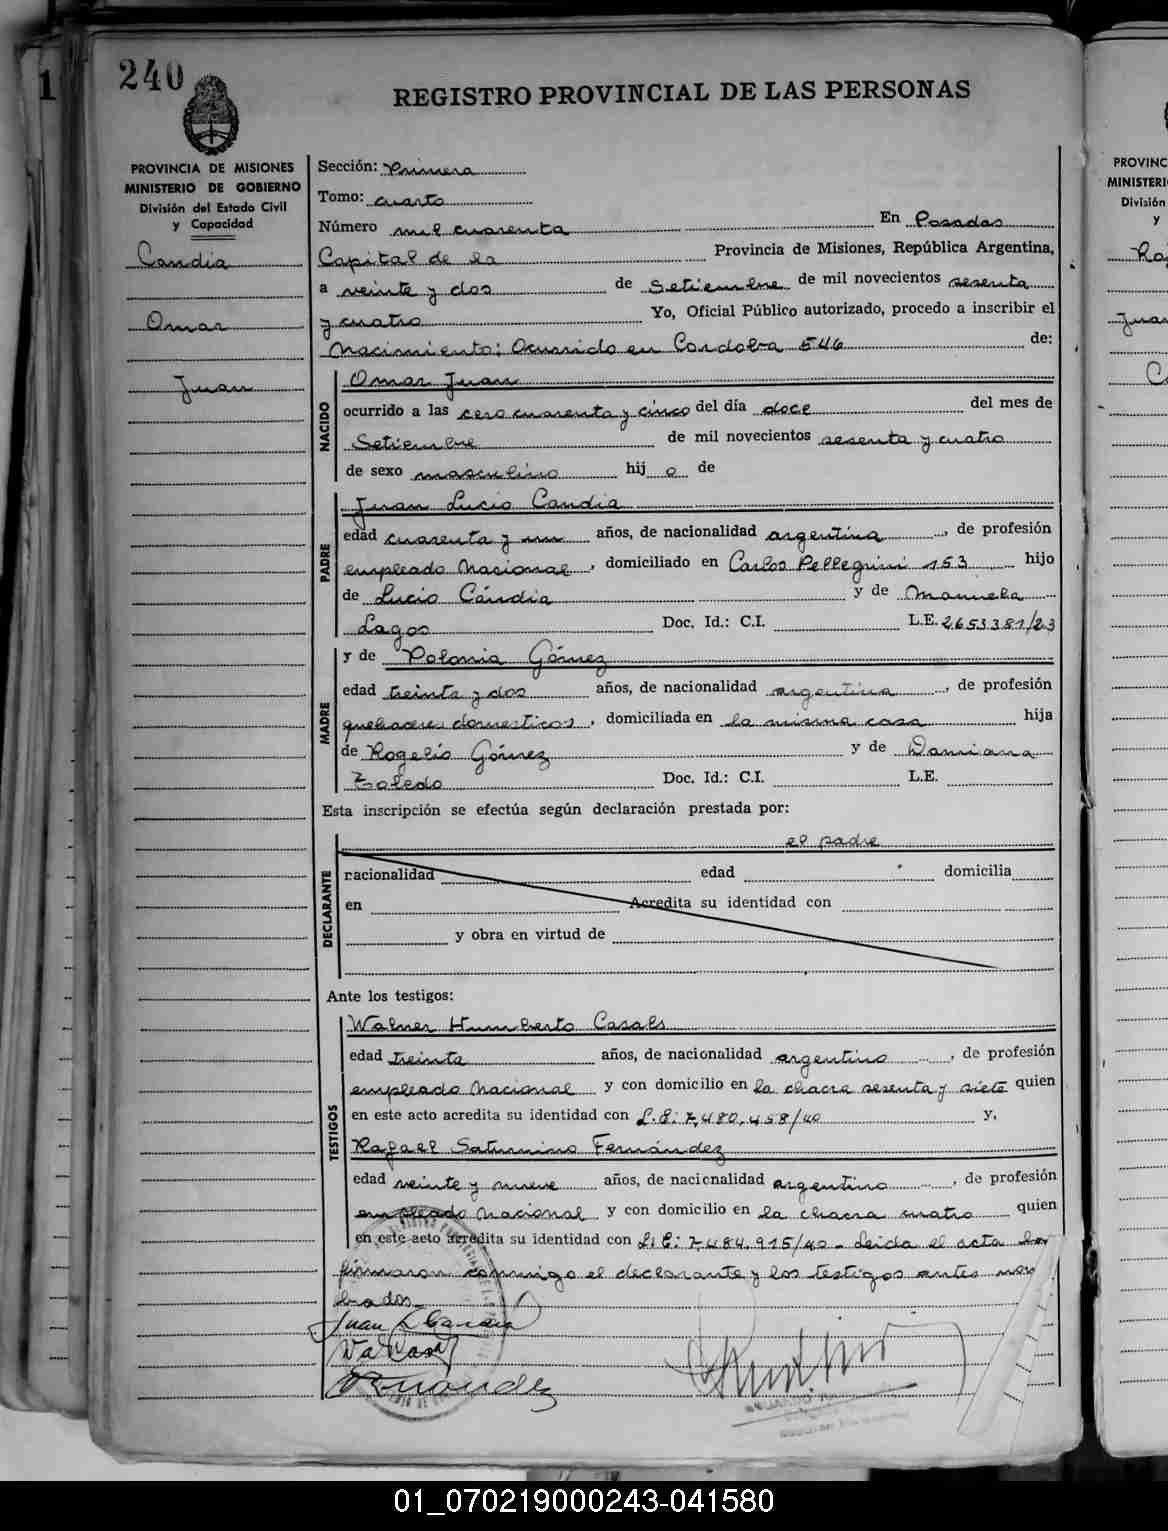 240
REGISTRO PROVINCIAL DE LAS PERSONAS
PROVINCIA DE MISIONES
MINISTERIO DE GOBIERNO
División del Estado Civil
y Capacidad
Candia
Omar
Juan
Sección: Primera
Tomo: cuarto
Número mil cuarenta En Posadas
Capital de la Provincia de Misiones, República Argentina,
a veinte y dos de Setiembre de mil novecientos sesenta
y cuatro Yo, Oficial Público autorizado, procedo a inscribir el
Nacimiento: Ocurrido en Cordoba 546 de:
NACIDO
Omar Juan
ocurrido a las cero cuarenta y cinco del día doce del mes de
Setiembre de mil novecientos sesenta y cuatro
de sexo masculino hij o de
PADRE
Juan Lucio Candia
edad cuarenta y un años, de nacionalidad argentina, de profesión
empleado Nacional, domiciliado en Carlos Pellegrini 153 hijo
de Lucio Cándia y de Manuela
Lagos Doc. Id.: C.I. L.E. 2653381/23
MADRE
y de Polonia Gómez
edad treinta y dos años, de nacionalidad argentina, de profesión
quehaceres domesticos, domiciliada en la misma casa hija
de Rogelio Gómez y de Damiana
Toledo Doc. Id.: C.I. L.E.
Esta inscripción se efectúa según declaración prestada por:
el padre
DECLARANTE
nacionalidad edad domicilia
en Acredita su identidad con
y obra en virtud de
Ante los testigos:
TESTIGOS
Walner Humberto Casals
edad treinta años, de nacionalidad argentino, de profesión
empleado Nacional y con domicilio en la chacra sesenta y siete quien
en este acto acredita su identidad con L.E: 7,480,458/40 y,
Rafael Saturnino Fernández
edad veinte y nueve años, de nacionalidad argentino, de profesión
empleado Nacional y con domicilio en la chacra cuatro quien
en este acto acredita su identidad con L.E: 7,484.915/40 - Leida el acta la
firmaron conmigo el declarante y los testigos antes nom
brados_
Juan L Candia
Fernandez
PROVINC
MINISTERI
División
y
Juan
01_070219000243-041580